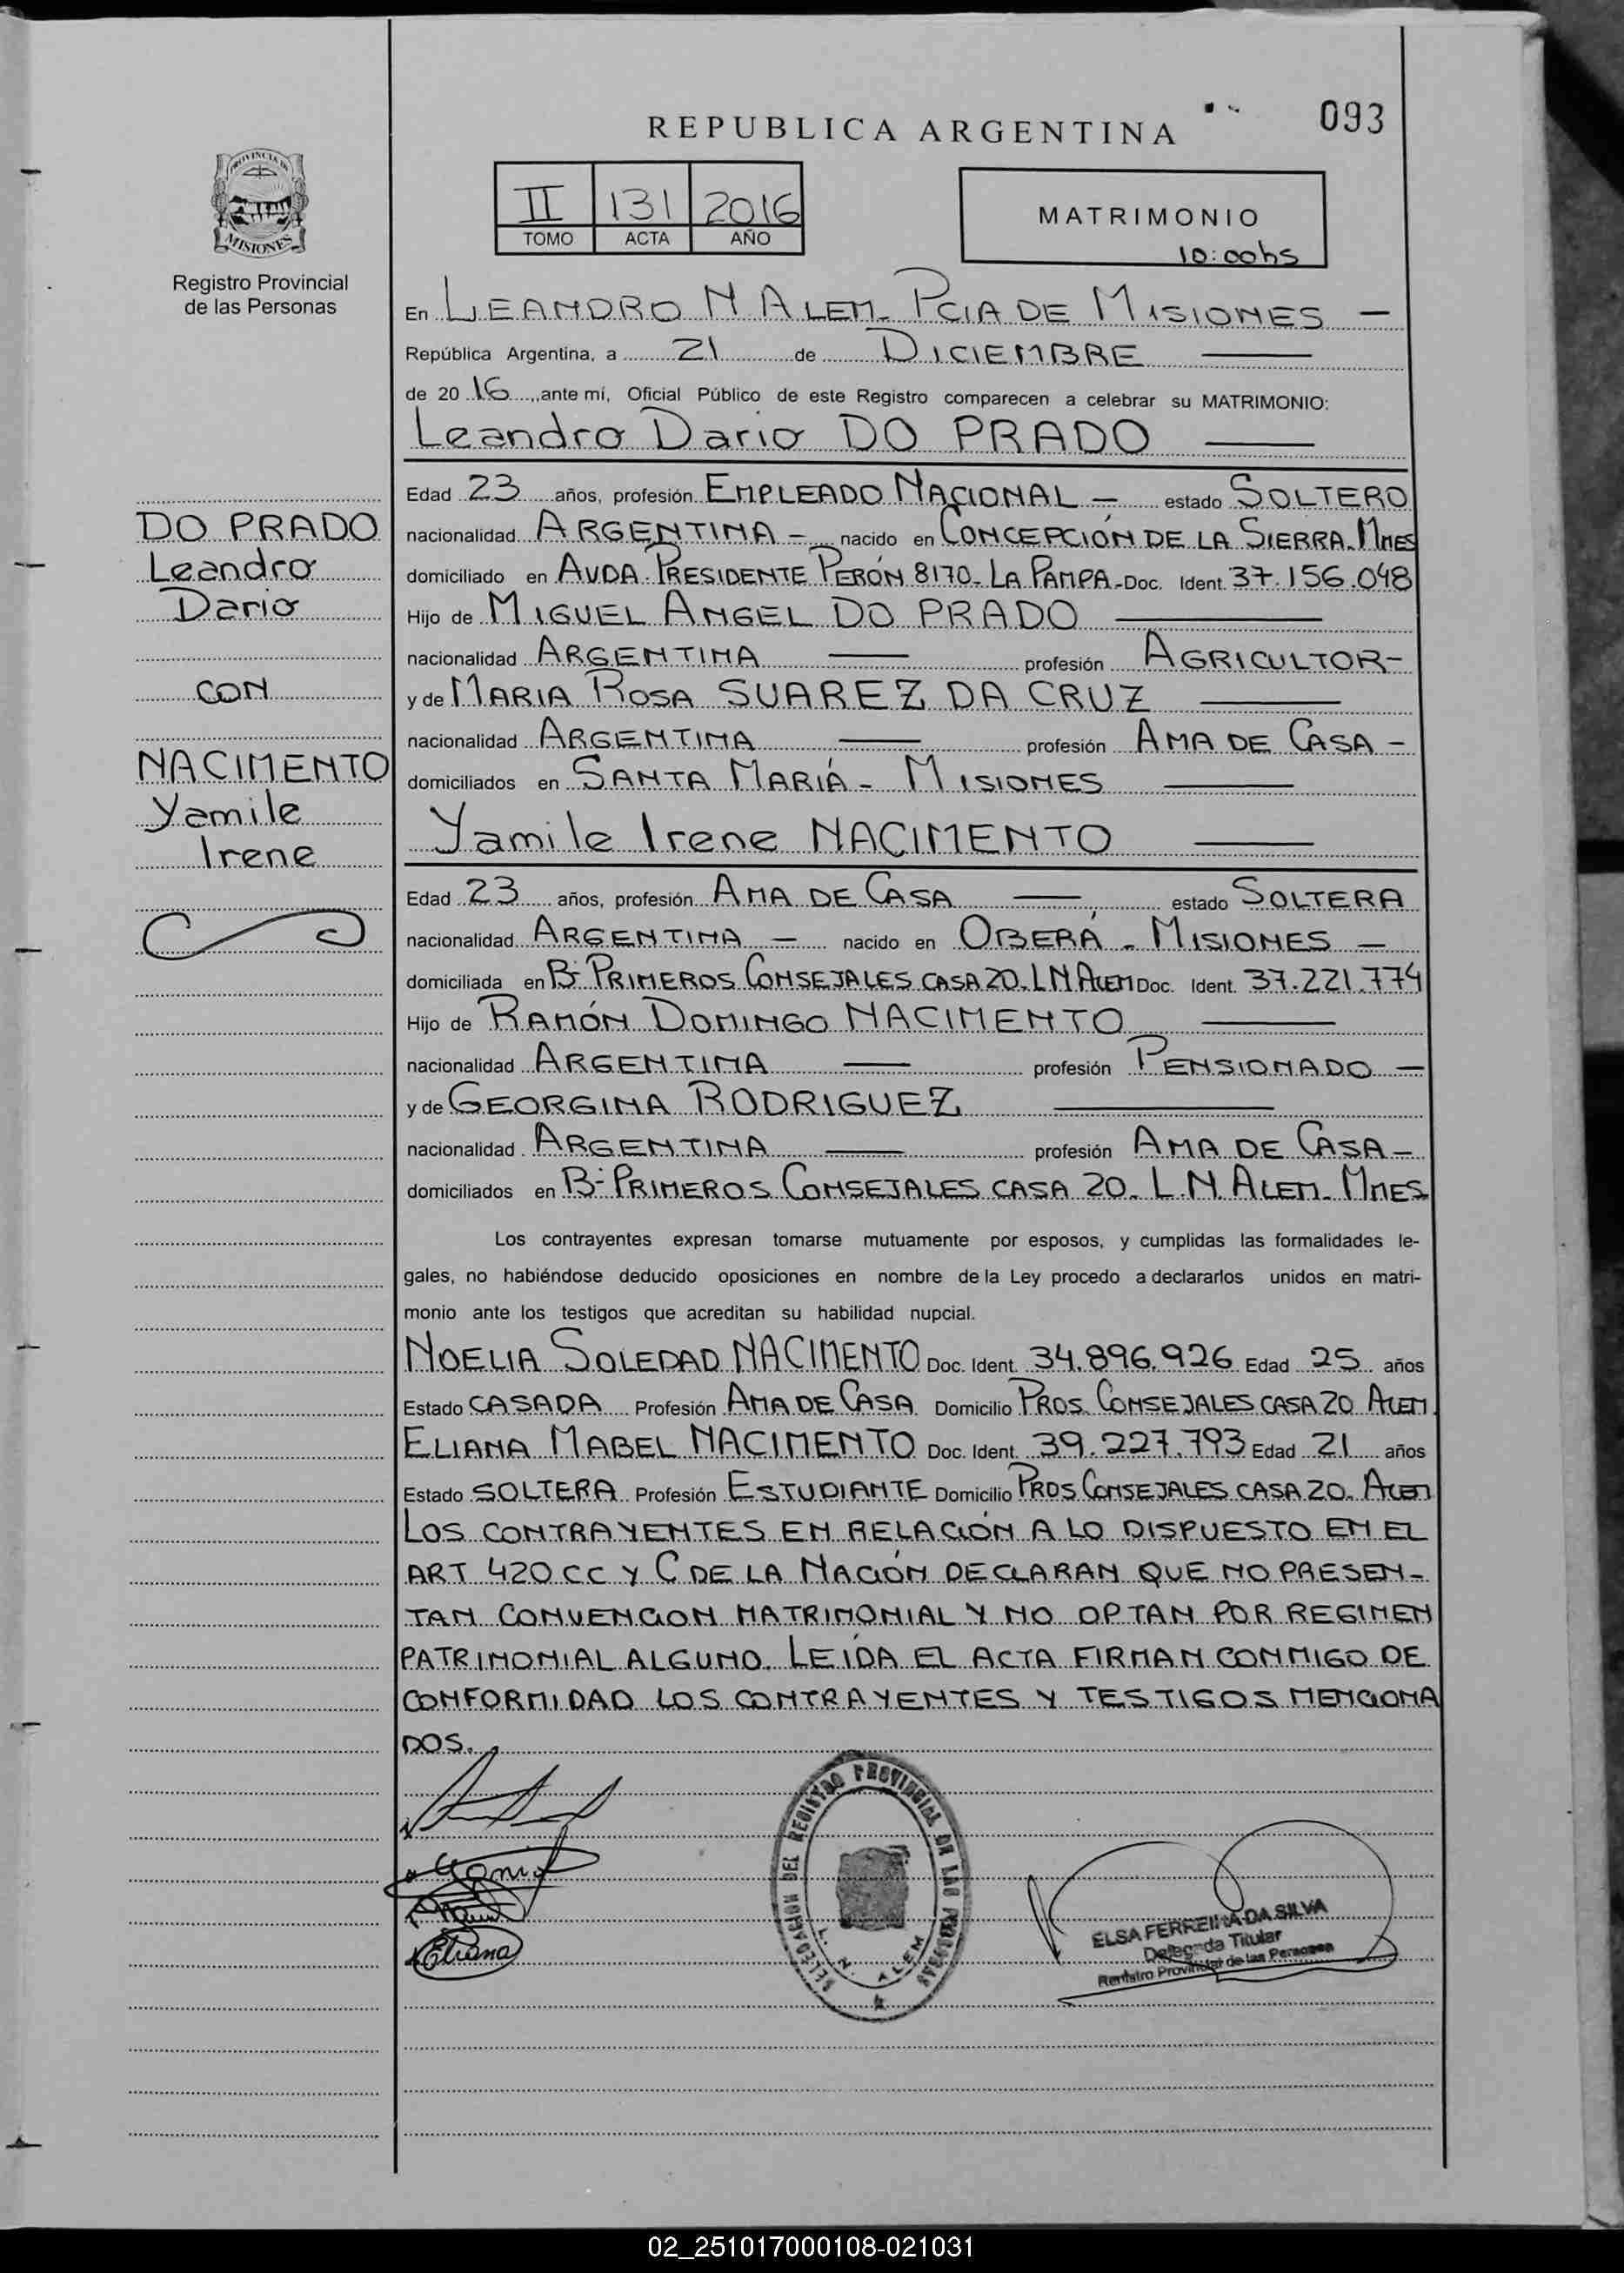 093
REPUBLICA ARGENTINA
II 131 2016
TOMO ACTA AÑO
MATRIMONIO
10:00hs
PROVINCIA DE
MISIONES
Registro Provincial
de las Personas
En LEANDRO N ALEM- PCIA DE MISIONES —
República Argentina, a 21 de DICIEMBRE
de 2016, ante mí, Oficial Público de este Registro comparecen a celebrar su MATRIMONIO:
Leandro Dario DO PRADO
Edad 23 años, profesión EMPLEADO NACIONAL — estado SOLTERO
nacionalidad ARGENTINA — nacido en CONCEPCIÓN DE LA SIERRA. MNES
domiciliado en AVDA. PRESIDENTE PERÓN 8170- LA PAMPA- Doc. Ident. 37.156.048
Hijo de MIGUEL ANGEL DO PRADO
nacionalidad ARGENTINA — profesión AGRICULTOR-
y de MARIA ROSA SUAREZ DA CRUZ
nacionalidad ARGENTINA — profesión AMA DE CASA -
domiciliados en SANTA MARIÁ - MISIONES
Yamile Irene NACIMENTO
Edad 23 años, profesión AMA DE CASA — estado SOLTERA
nacionalidad ARGENTINA — nacido en OBERÁ - MISIONES —
domiciliada en B- PRIMEROS CONSEJALES CASA 20. L N ALEM Doc. Ident. 37.221.774
Hijo de RAMÓN DOMINGO NACIMENTO
nacionalidad ARGENTINA — profesión PENSIONADO —
y de GEORGINA RODRIGUEZ
nacionalidad ARGENTINA — profesión AMA DE CASA -
domiciliados en B- PRIMEROS CONSEJALES CASA 20. L.N. ALEM- MNES
Los contrayentes expresan tomarse mutuamente por esposos, y cumplidas las formalidades le-
gales, no habiéndose deducido oposiciones en nombre de la Ley procedo a declararlos unidos en matri-
monio ante los testigos que acreditan su habilidad nupcial.
NOELIA SOLEDAD NACIMENTO Doc. Ident. 34.896.926 Edad 25 años
Estado CASADA Profesión AMA DE CASA Domicilio PROS. CONSEJALES CASA 20 ALEM.
ELIANA MABEL NACIMENTO Doc. Ident. 39.227.793 Edad 21 años
Estado SOLTERA Profesión ESTUDIANTE Domicilio PROS CONSEJALES CASA 20. ALEM
LOS CONTRAYENTES EN RELACIÓN A LO DISPUESTO EN EL
ART 420 CC Y C DE LA NACIÓN DECLARAN QUE NO PRESEN-
TAN CONVENCION MATRIMONIAL Y NO OPTAN POR REGIMEN
PATRIMONIAL ALGUNO. LEÍDA EL ACTA FIRMAN CONMIGO DE
CONFORMIDAD LOS CONTRAYENTES Y TESTIGOS MENCIONA
DOS.
DO PRADO
Leandro
Dario
CON
NACIMENTO
Yamile
Irene
Eliana
DELEGACION DEL REGISTRO PROVINCIAL DE LAS PERSONAS
L. N. ALEM
ELSA FERREIRA DA SILVA
Delegada Titular
Registro Provincial de las Personas
02_251017000108-021031